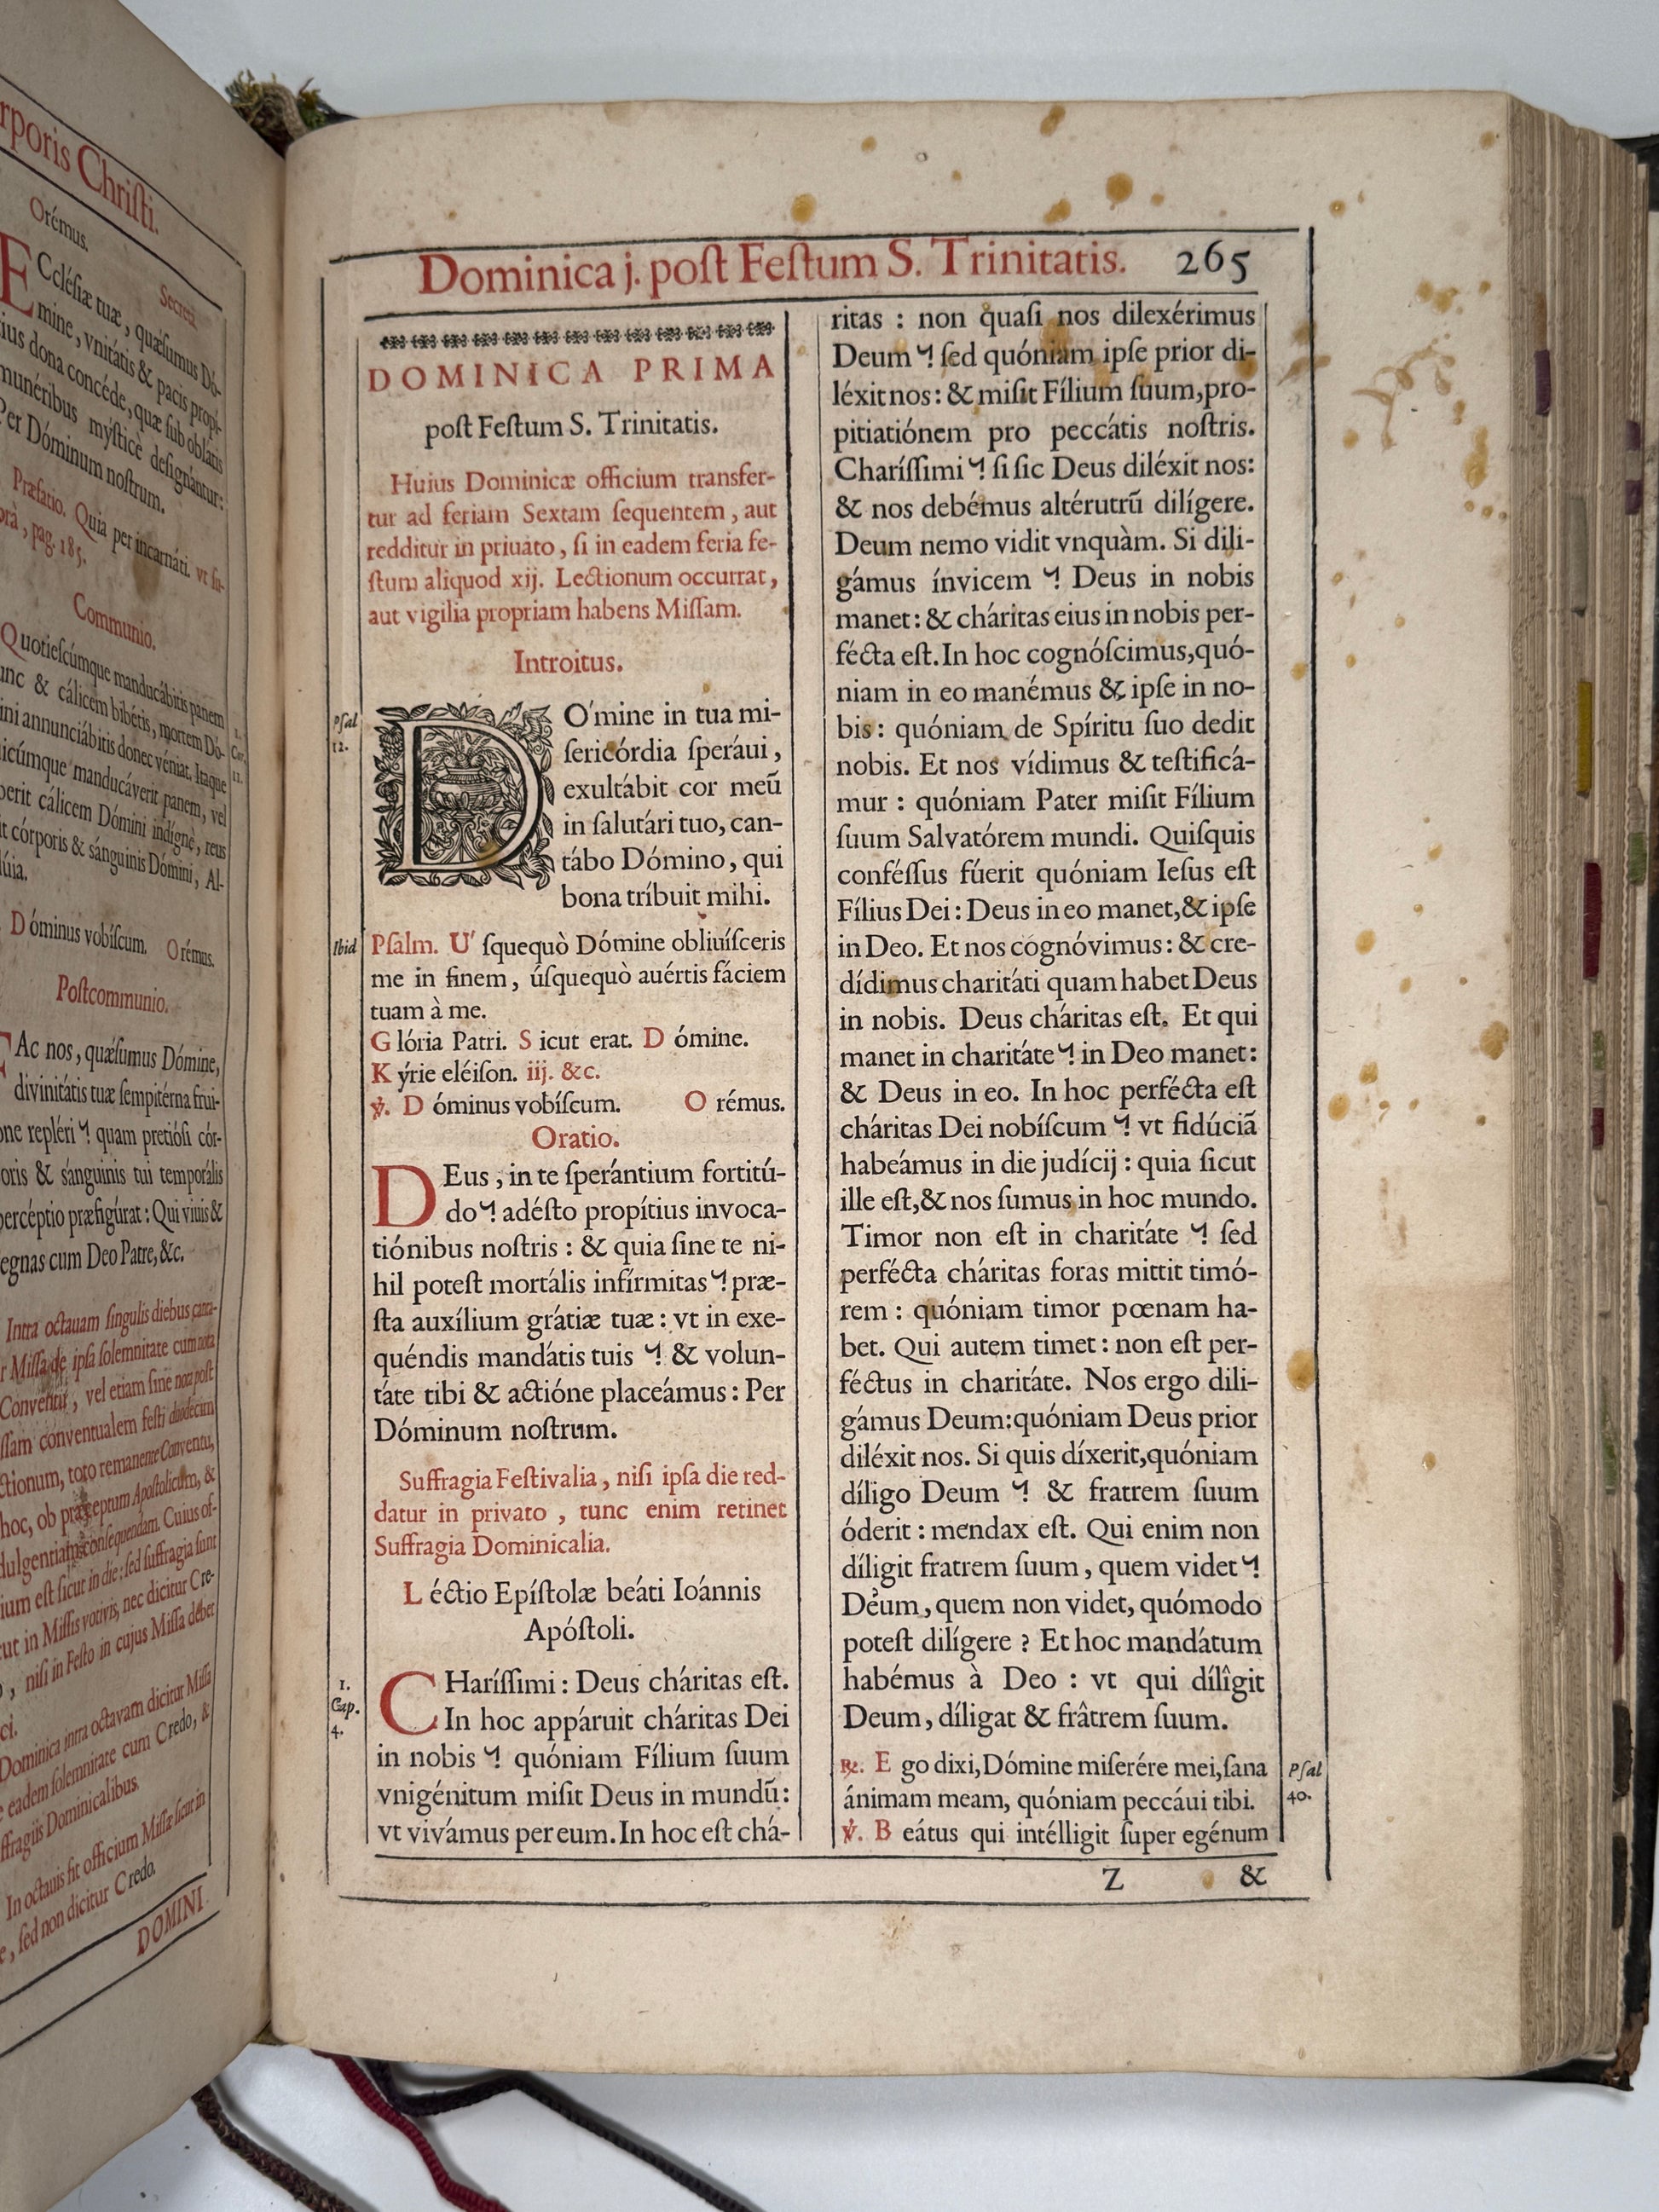 rporis Chriſti.
Orémus.
Secreta
ECcléſiæ tuæ, quæſumus Dó-
mine, vnitátis & pacis propí-
tius dona concéde, quæ ſub oblátis
munéribus myſticè deſignántur:
Per Dóminum noſtrum.
Præfatio. Quia per incarnáti. vt ſu-
prà, pag. 185.
Communio.
Quotieſcúmque manducábitis panem
hunc & cálicem bibétis, mortem Dó-
mini annunciábitis donec véniat. Itaque
quicúmque manducáverit panem, vel
biberit cálicem Dómini indígnè, reus
erit córporis & sánguinis Dómini, Al-
lelúia.
1.
Cor.
11.
Dóminus vobíſcum. Orémus.
Poſtcommunio.
FAc nos, quæſumus Dómine,
divinitátis tuæ ſempitérna frui-
óne repléri ꟮ quam pretióſi cór-
poris & sánguinis tui temporális
percéptio præfigúrat: Qui viuis &
regnas cum Deo Patre, &c.
Intra octauam ſingulis diebus canta-
r Miſſa de ipſa ſolemnitate cum nota
Conventui, vel etiam ſine nota poſt
ſſam conventualem feſti duodecim
ctionum, toto remanente Conventu,
hoc, ob præceptum Apoſtolicum, &
dulgentiam conſequendam. Cuius of-
ium eſt ſicut in die: ſed ſuffragia ſunt
ut in Miſſis votivis, nec dicitur Cre-
, niſi in Feſto in cujus Miſſa debet
ci.
Dominica intra octavam dicitur Miſſa
e eadem ſolemnitate cum Credo, &
ffragiis Dominicalibus.
In octauis fit officium Miſſæ ſicut in
e, ſed non dicitur Credo.
DOMINI
Dominica j. poſt Feſtum S. Trinitatis. 265
DOMINICA PRIMA
poſt Feſtum S. Trinitatis.
Huius Dominicæ officium transfer-
tur ad feriam Sextam ſequentem, aut
redditur in priuato, ſi in eadem feria fe-
ſtum aliquod xij. Lectionum occurrat,
aut vigilia propriam habens Miſſam.
Introitus.
Pſal
12.
DO'mine in tua mi-
ſericórdia ſperáui,
exultábit cor meū
in ſalutári tuo, can-
tábo Dómino, qui
bona tríbuit mihi.
Ibid
Pſalm. U' ſquequò Dómine obliuíſceris
me in finem, úſquequò auértis fáciem
tuam à me.
G lória Patri. S icut erat. D ómine.
K ýrie eléiſon. iij. &c.
℣. D óminus vobíſcum. O rémus.
Oratio.
DEus, in te ſperántium fortitú-
do ꟮ adéſto propítius invoca-
tiónibus noſtris: & quia ſine te ni-
hil poteſt mortális infírmitas ꟮ præ-
ſta auxílium grátiæ tuæ: vt in exe-
quéndis mandátis tuis ꟮ & volun-
táte tibi & actióne placeámus: Per
Dóminum noſtrum.
Suffragia Feſtivalia, niſi ipſa die red-
datur in privato, tunc enim retinet
Suffragia Dominicalia.
L éctio Epíſtolæ beáti Ioánnis
Apóſtoli.
1.
Cap.
4.
CHaríſſimi: Deus cháritas eſt.
In hoc appáruit cháritas Dei
in nobis ꟮ quóniam Fílium ſuum
vnigénitum miſit Deus in mundū:
vt vivámus per eum. In hoc eſt chá-
ritas: non quaſi nos dilexérimus
Deum ꟮ ſed quóniam ipſe prior di-
léxit nos: & miſit Fílium ſuum, pro-
pitiatiónem pro peccátis noſtris.
Charíſſimi ꟮ ſi ſic Deus diléxit nos:
& nos debémus altérutrū dilígere.
Deum nemo vidit vnquàm. Si dili-
gámus ínvicem ꟮ Deus in nobis
manet: & cháritas eius in nobis per-
fécta eſt. In hoc cognóſcimus, quó-
niam in eo manémus & ipſe in no-
bis: quóniam de Spíritu ſuo dedit
nobis. Et nos vídimus & teſtificá-
mur: quóniam Pater miſit Fílium
ſuum Salvatórem mundi. Quiſquis
conféſſus fúerit quóniam Ieſus eſt
Fílius Dei: Deus in eo manet, & ipſe
in Deo. Et nos cognóvimus: & cre-
dídimus charitáti quam habet Deus
in nobis. Deus cháritas eſt. Et qui
manet in charitáte ꟮ in Deo manet:
& Deus in eo. In hoc perfécta eſt
cháritas Dei nobíſcum ꟮ vt fidúciā
habeámus in die judícij: quia ſicut
ille eſt, & nos ſumus in hoc mundo.
Timor non eſt in charitáte ꟮ ſed
perfécta cháritas foras mittit timó-
rem: quóniam timor pœnam ha-
bet. Qui autem timet: non eſt per-
féctus in charitáte. Nos ergo dili-
gámus Deum: quóniam Deus prior
diléxit nos. Si quis díxerit, quóniam
díligo Deum ꟮ & fratrem ſuum
óderit: mendax eſt. Qui enim non
díligit fratrem ſuum, quem videt ꟮
Deum, quem non videt, quómodo
poteſt dilígere? Et hoc mandátum
habémus à Deo: vt qui dílîgit
Deum, díligat & frâtrem ſuum.
℟. E go dixi, Dómine miſerére mei, ſana
ánimam meam, quóniam peccáui tibi.
℣. B eátus qui intélligit ſuper egénum
Pſal
40.
Z &